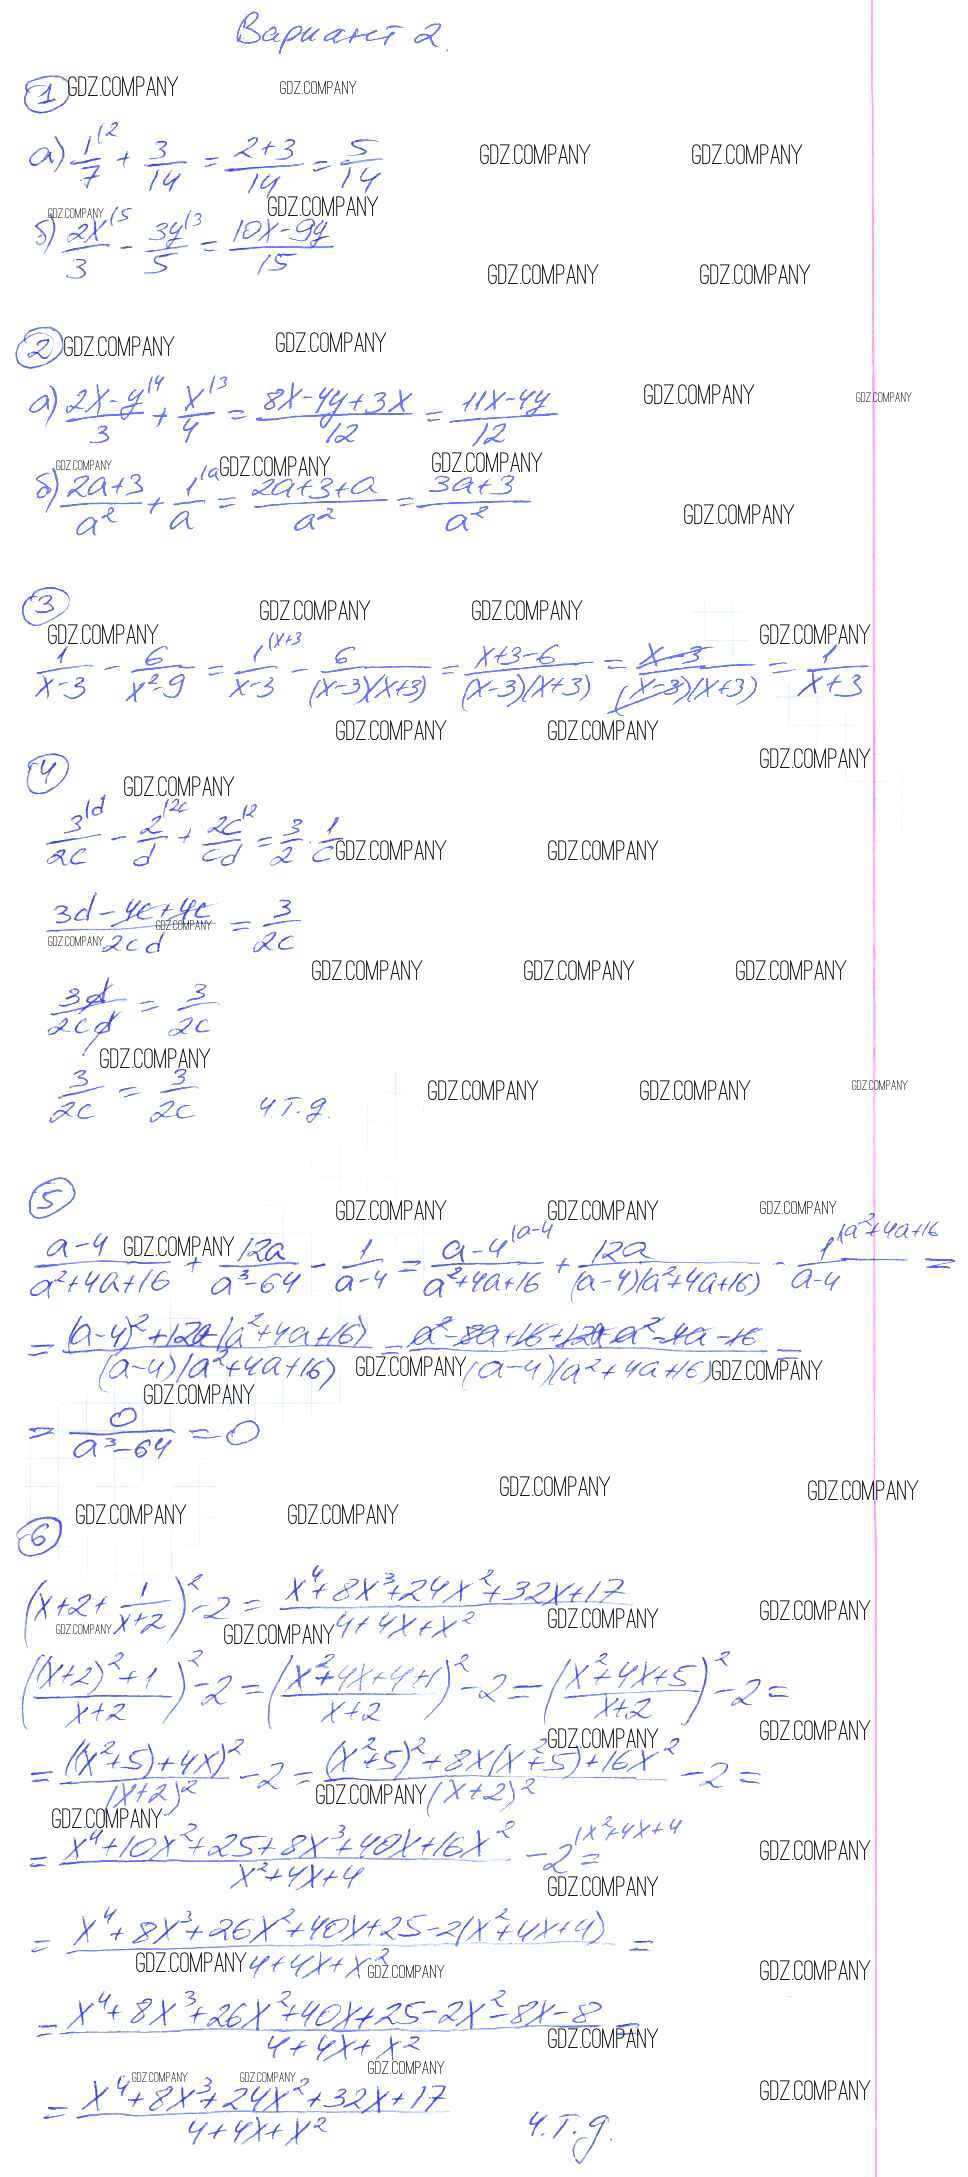 Вариант 2.
1 GDZ.COMPANY GDZ.COMPANY
а) 1/7 (2 + 3/14 = (2+3)/14 = 5/14 GDZ.COMPANY GDZ.COMPANY
GDZ.COMPANY GDZ.COMPANY
б) 2x/3 (5 - 3y/5 (3 = (10x-9y)/15
GDZ.COMPANY GDZ.COMPANY
2 GDZ.COMPANY GDZ.COMPANY
а) (2x-y)/3 (4 + x/4 (3 = (8x-4y+3x)/12 = (11x-4y)/12 GDZ.COMPANY GDZ.COMPANY
GDZ.COMPANY GDZ.COMPANY GDZ.COMPANY
б) (2a+3)/a² + 1/a (a = (2a+3+a)/a² = (3a+3)/a² GDZ.COMPANY
3 GDZ.COMPANY GDZ.COMPANY
GDZ.COMPANY GDZ.COMPANY
1/(x-3) - 6/(x²-9) = 1/(x-3) (x+3 - 6/((x-3)(x+3)) = (x+3-6)/((x-3)(x+3)) = (x-3)/((x-3)(x+3)) = 1/(x+3)
GDZ.COMPANY GDZ.COMPANY GDZ.COMPANY
4 GDZ.COMPANY
3/2c (d - 2/d (2c + 2c/cd (2 = 3/2 · 1/c GDZ.COMPANY GDZ.COMPANY
(3d-4c+4c)/2cd = 3/2c
GDZ.COMPANY GDZ.COMPANY
GDZ.COMPANY GDZ.COMPANY GDZ.COMPANY
3d/2cd = 3/2c
GDZ.COMPANY
3/2c = 3/2c ч.т.д. GDZ.COMPANY GDZ.COMPANY GDZ.COMPANY
5 GDZ.COMPANY GDZ.COMPANY GDZ.COMPANY
GDZ.COMPANY
(a-4)/(a²+4a+16) + 12a/(a³-64) - 1/(a-4) = (a-4)/(a²+4a+16) (a-4 + 12a/((a-4)(a²+4a+16)) - 1/(a-4) (a²+4a+16 =
= ((a-4)²+12a-(a²+4a+16))/((a-4)(a²+4a+16)) = (a²-8a+16+12a-a²-4a-16)/((a-4)(a²+4a+16)) =
GDZ.COMPANY GDZ.COMPANY
GDZ.COMPANY
= 0/(a³-64) = 0
GDZ.COMPANY GDZ.COMPANY
GDZ.COMPANY GDZ.COMPANY
6
(x+2+1/(x+2))²-2 = (x⁴+8x³+24x²+32x+17)/(4+4x+x²)
GDZ.COMPANY GDZ.COMPANY GDZ.COMPANY GDZ.COMPANY
(((x+2)²+1)/(x+2))²-2 = ((x²+4x+4+1)/(x+2))²-2 = ((x²+4x+5)/(x+2))²-2 =
GDZ.COMPANY GDZ.COMPANY
= ((x²+5)+4x)²/(x+2)² - 2 = ((x²+5)²+8x(x²+5)+16x²)/(x+2)² - 2 =
GDZ.COMPANY GDZ.COMPANY
= (x⁴+10x²+25+8x³+40x+16x²)/(x²+4x+4) - 2 (x²+4x+4 = GDZ.COMPANY
GDZ.COMPANY
= (x⁴+8x³+26x²+40x+25-2(x²+4x+4))/(4+4x+x²) =
GDZ.COMPANY GDZ.COMPANY GDZ.COMPANY
= (x⁴+8x³+26x²+40x+25-2x²-8x-8)/(4+4x+x²) =
GDZ.COMPANY
GDZ.COMPANY GDZ.COMPANY GDZ.COMPANY
= (x⁴+8x³+24x²+32x+17)/(4+4x+x²) ч.т.д. GDZ.COMPANY